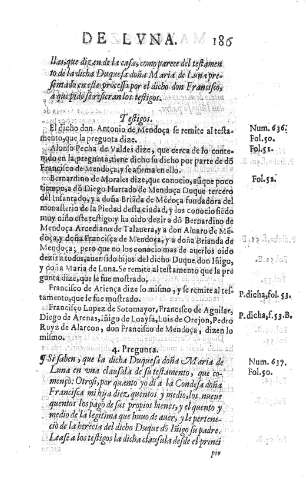 DE LVNA. 186
llas, que dizen de la casa, como parece del testamen-
to de la dicha Duquesa doña Maria de Luna pre-
sentado en este processo por el dicho don Francisco,
a que pido se refieran los testigos.
Testigos.
El dicho don Antonio de Mendoça se remite al testa- Num. 636.
mento, que la pregunta dize. Fol. 50.
Alonso Pecha de Valdes dize, que cerca de lo conte- Fol. 51.
nido en la pregunta tiene dicho su dicho por parte de dō
Francisco de Mendoça, y se afirma en ello.
Bernardino de Morales dize, que conocio, aūque poco Fol. 52.
tiempo, a dō Diego Hurtado de Mendoça Duque tercero
del Infantado, y a doña Briāda de Mēdoça fundadora del
monasterio de la Piedad desta ciudad, y los conocio siēdo
muy niño este testigo, y ha oido dezir a dō Bernardino de
Mendoça Arcediano de Talauera, y a don Aluaro de Mē-
doça, y doña Francisca de Mendoça, y a doña Brianda de
Mendoça; pero que no los conocio mas de auerlos oido
dezir a todos auer sido hijos del dicho Duque don Iñigo,
y doña Maria de Luna. Se remite al testamento que la pre
gunta dize, que le fue mostrado.
Francisco de Atiença dize lo mismo, y se refiere al tes- P. dicha, fol. 53.
tamento, que le fue mostrado.
Francisco Lopez de Sotomayor, Francisco de Aguilar, P. dicha, f. 53. B.
Diego de Arenas, Iñigo de Loaysa, Luis de Orejon, Pedro
Ruyz de Alarcon, don Francisco de Mendoça, dizen lo
mismo.
4. Pregunta.
¶ Si saben, que la dicha Duquesa doña Maria de Num. 637.
Luna en vna clausula de su testamento, que co- Fol. 50.
mença: Otrosi, por quanto yo di a la Condesa doña
Francisca mi hija diez quentos y medio, los nueue
quentos los pago de sus propios bienes, y el quento y
medio de la legitima que huuo de auer, y le pertenecio
de la herencia del dicho Duque dō Iñigo su padre.
Lease a los testigos la dicha clausula desde el princi
pio